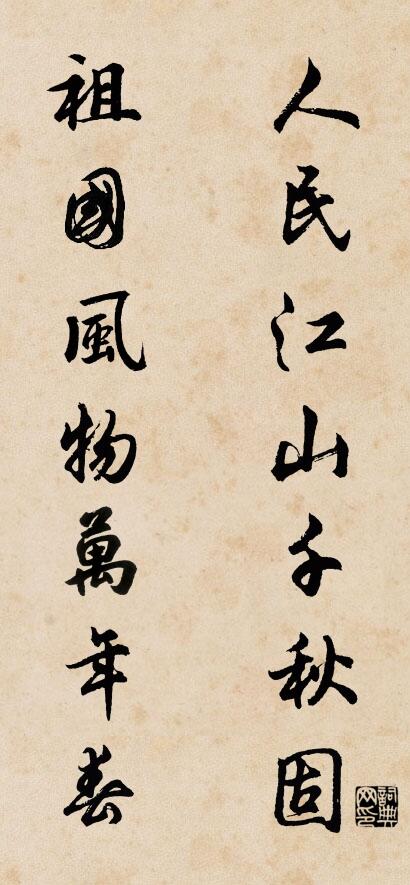 人民江山千秋固
祖國風物萬年春
詞典网印